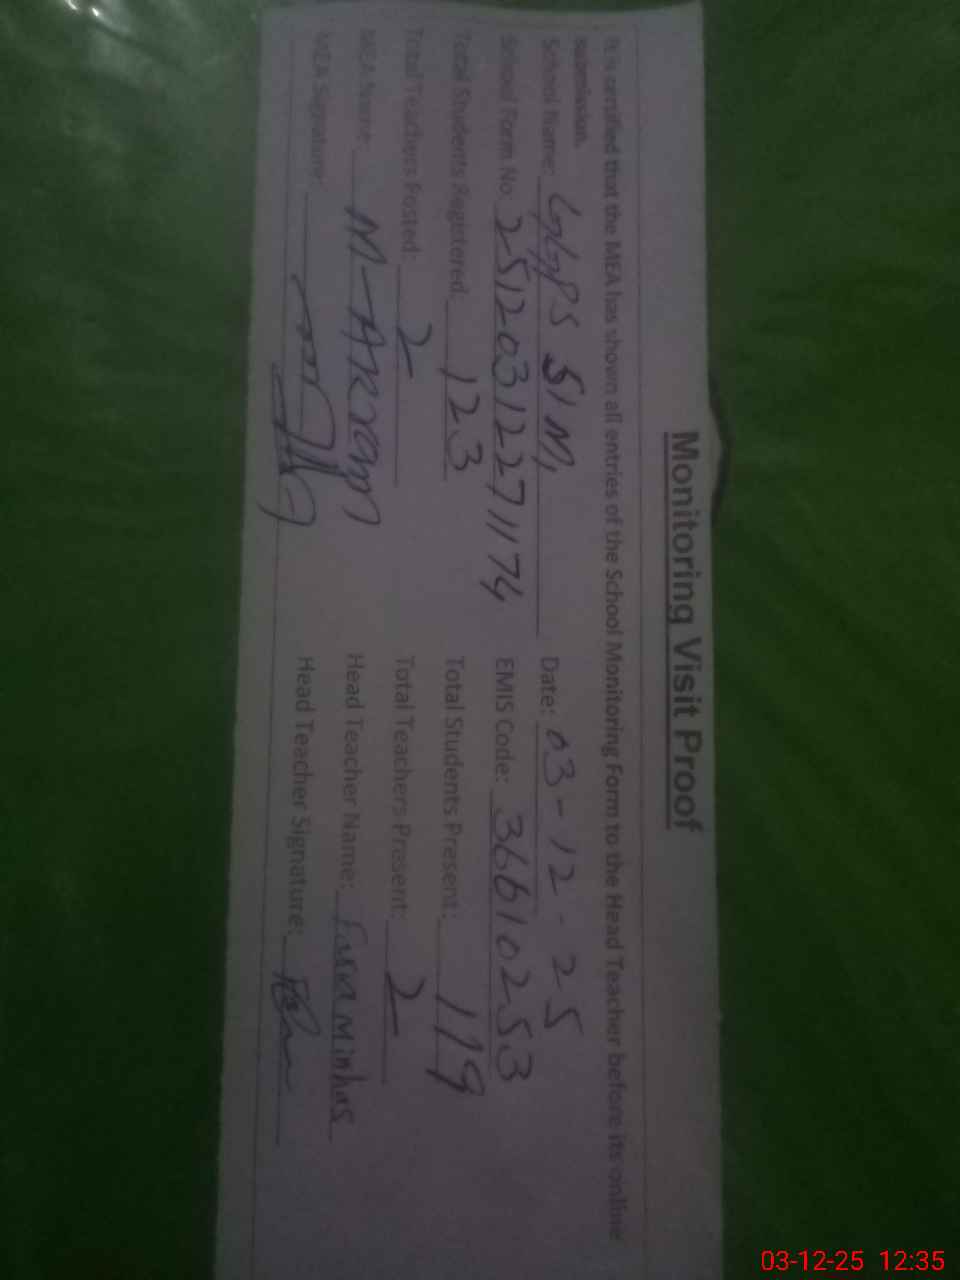 Monitoring Visit Proof
It is certified that the MEA has shown all entries of the School Monitoring Form to the Head Teacher before its online
submission.
School Name: GGPS 51 M, Date: 03-12-25
School Form No: 251203122711 74 EMIS Code: 36610253
Total Students Registered: 123 Total Students Present: 119
Total Teachers Posted: 2 Total Teachers Present: 2
MEA Name: M-AKram Head Teacher Name: Faria Minhas
MEA Signature: Head Teacher Signature:
03-12-25 12:35